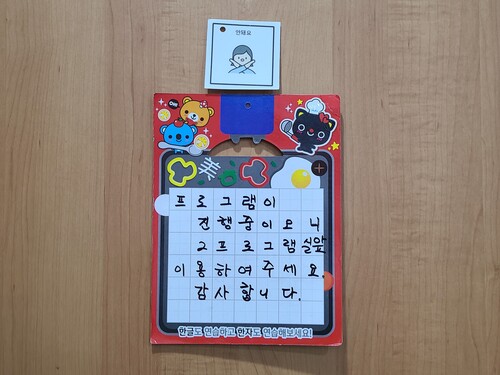 안돼요
OH!
프로그램이
진행중이오니
2프로그램실앞
이용하여주세요.
감사합니다.
한글도 연습하고 한자도 연습해보세요!